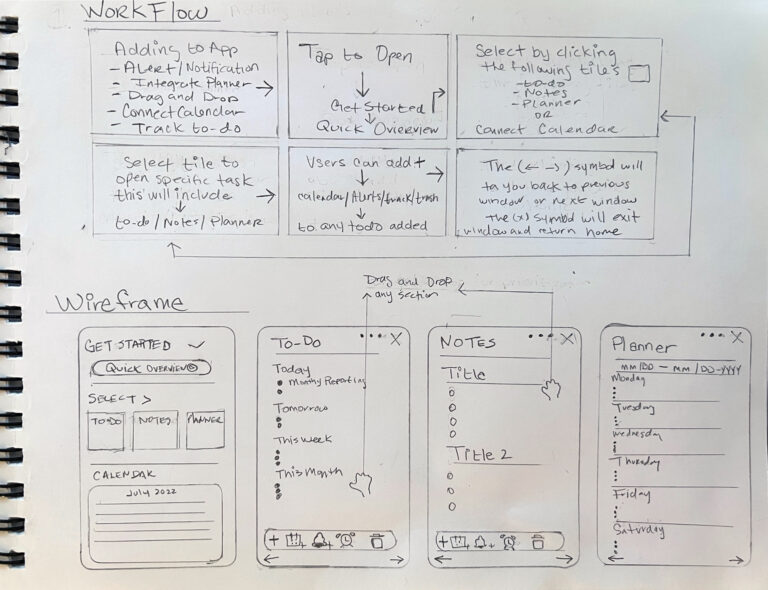 WORKFLOW
Adding to App
- Alert/Notification
- Integrate Planner
- Drag and Drop
- Connect Calendar
- Track to-do
Tap to Open
Get Started
Quick Overview
Select by clicking
the following tiles
- to-do
- Notes
- Planner
OR
Connect Calendar
Select tile to
open specific task
this will include
to-do/Notes/Planner
Users can add +
calendar/Alerts/track/trash
to any todo added
The (← →) symbol will
ta you back to previous
window or next window
The (x) symbol will exit
window and return home
Wireframe
Drag and Drop
any section
GET STARTED
QUICK OVERVIEW
SELECT >
TO-DO
NOTES
PLANNER
CALENDAR
July 2022
To-Do
Today
Monthly Reporting
Tomorrow
This Week
This Month
NOTES
Title
Title 2
Planner
MM/DD - MM/DD-YYYY
Monday
Tuesday
Wednesday
Thursday
Friday
Saturday